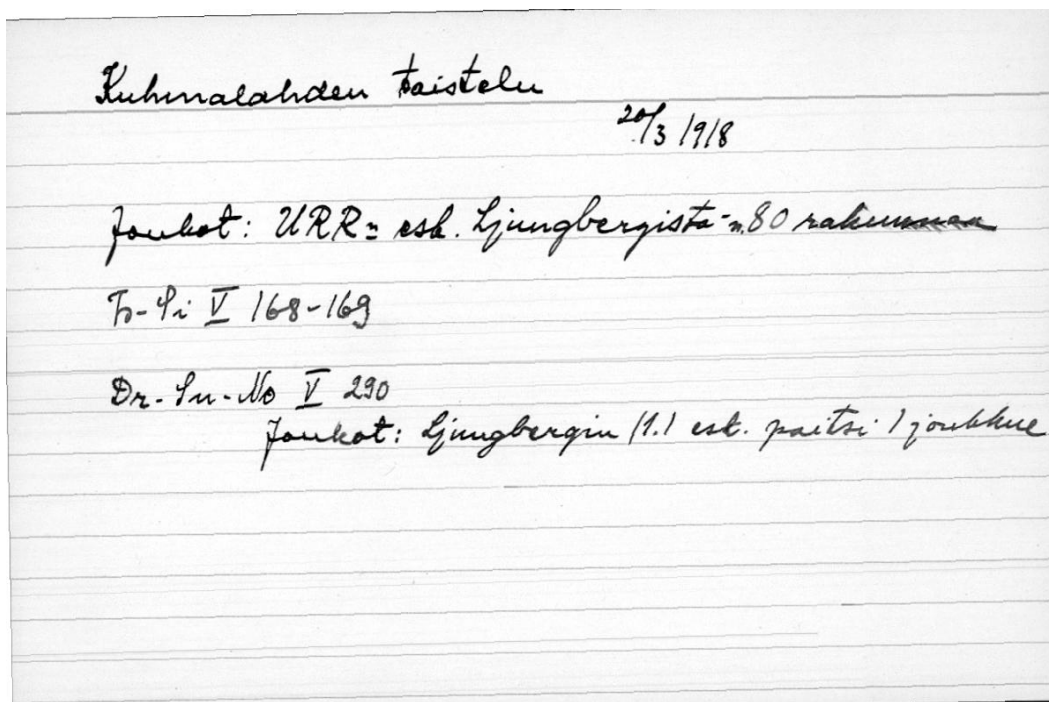 Kuhmalahden taistelu
20/3 1918
Joukot: URR: esk. Ljungbergista n. 80
V 168-169
Dr- Su- No V 290
Joukot: Ljungbergin (1.) esk. paitsi 1 joukkue